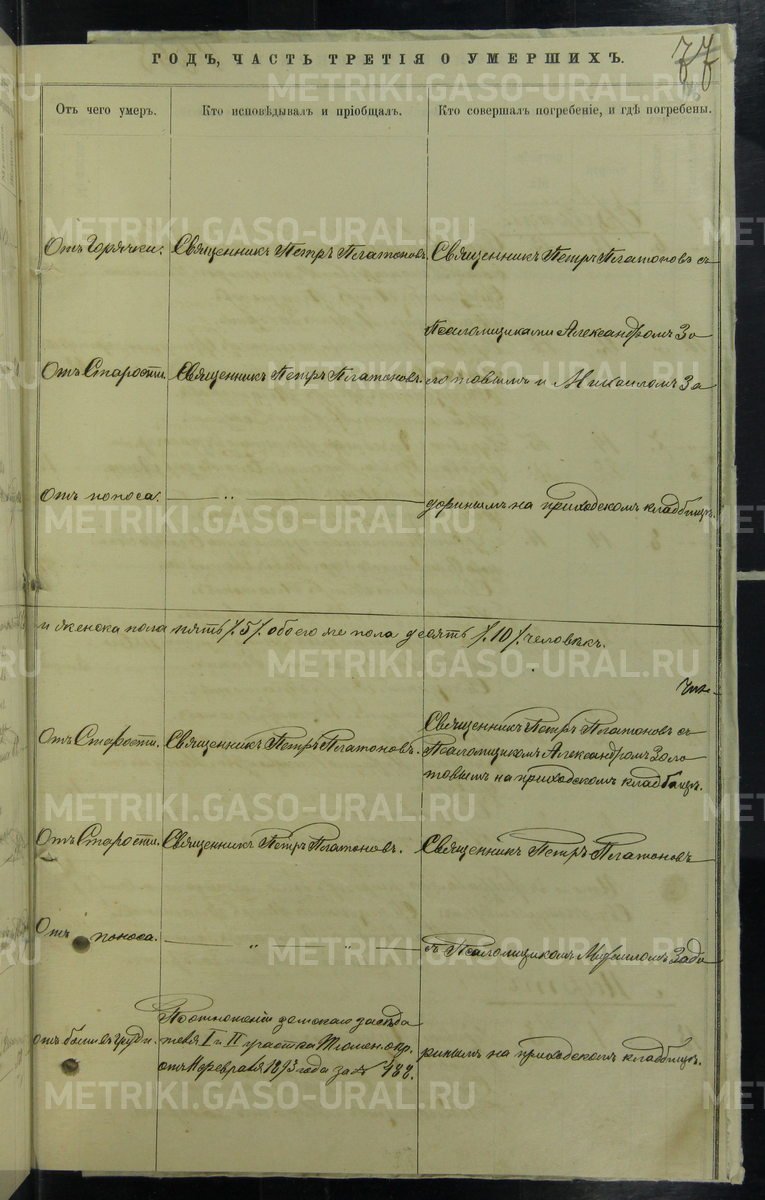 77
ГОДЪ, ЧАСТЬ ТРЕТІЯ О УМЕРШИХЪ.
Отъ чего умеръ.
Кто исповѣдывалъ и пріобщалъ.
Кто совершалъ погребеніе, и гдѣ погребены.
Отъ Горячки.
Священникъ Петръ Платоновъ.
Священникъ Петръ Платоновъ съ
Псаломщиками Александромъ Зо
Отъ Старости.
Священникъ Петръ Платоновъ.
лотовымъ и Михаиломъ За
Отъ поноса.
— „ —
доринымъ на приходскомъ кладбищѣ.
и женска пола пять /.5/. обоего же пола десять /.10/. человѣкъ.
Отъ Старости.
Священникъ Петръ Платоновъ.
Священникъ Петръ Платоновъ съ
Псаломщикомъ Александромъ Золо
товымъ на приходскомъ кладбищѣ.
Отъ Старости.
Священникъ Петръ Платоновъ.
Священникъ Петръ Платоновъ
Отъ поноса.
— „ — „ —
съ Псаломщикомъ Михаиломъ Задо
отъ боли въ груди.
По отношенію земскаго засѣда
теля I и II участка Тюмен. окр.
отъ 11 февраля 1893 года за № 188.
ринымъ на приходскомъ кладбищѣ.
METRIKI.GASO-URAL.RU